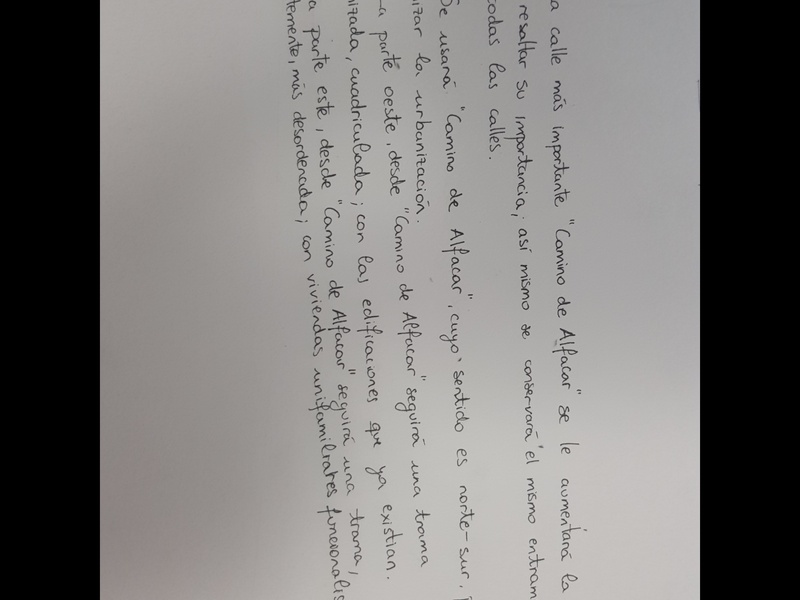 a calle más importante "Camino de Alfacar" se le aumentará la
resaltar su importancia; así mismo se conservará el mismo entram
todas las calles.
Se usará "Camino de Alfacar", cuyo sentido es norte-sur,
izar la urbanización.
a parte oeste, desde "Camino de Alfacar" seguirá una trama
nizada, cuadriculada; con las edificaciones que ya existian.
a parte este, desde "Camino de Alfacar" seguirá una trama,
temente, más desordenada; con viviendas unifamilrares funcionalis